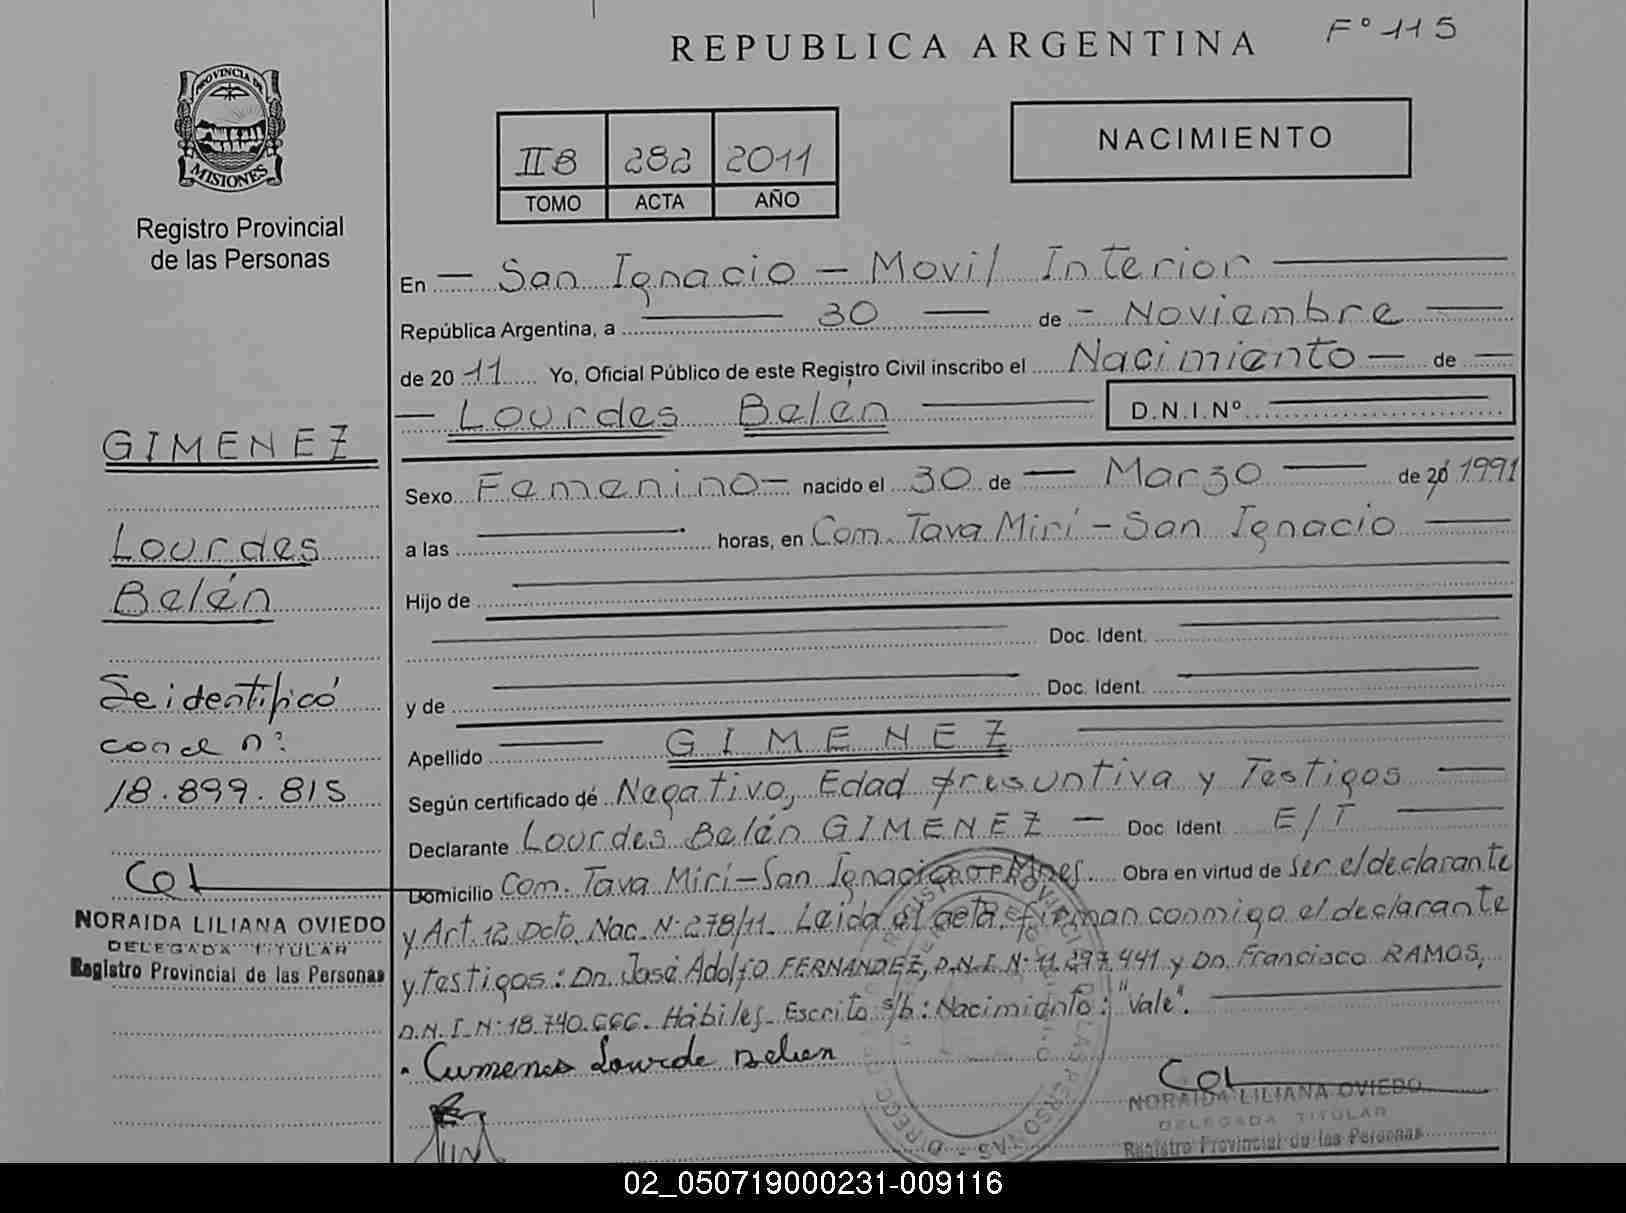 F° 115
REPUBLICA ARGENTINA
PROVINCIA DE
MISIONES
Registro Provincial
de las Personas
IIB 282 2011
TOMO ACTA AÑO
NACIMIENTO
En San Ignacio - Movil Interior
República Argentina, a 30 de Noviembre
de 2011 Yo, Oficial Público de este Registro Civil inscribo el Nacimiento de
Lourdes Belén D.N.I.Nº
Sexo Femenino nacido el 30 de Marzo de 20 1991
a las horas, en Com. Tava Mirí - San Ignacio
Hijo de
Doc. Ident.
y de Doc. Ident.
Apellido GIMENEZ
Según certificado de Negativo, Edad presuntiva y Testigos
Declarante Lourdes Belén GIMENEZ Doc Ident E/T
Domicilio Com. Tava Mirí - San Ignacio - Mnes Obra en virtud de Ser el declarante
y Art. 12 Dcto. Nac. Nº 278/11. Leida el acta, firman conmigo el declarante
y testigos: Dn. José Adolfo FERNANDEZ, D.N.I. Nº 11.297.441 y Dn. Francisco RAMOS,
D.N.I. Nº: 18.740.666. Hábiles. Escrito s/b: Nacimiento: "Vale".
Lourde Belen
NORAIDA LILIANA OVIEDO
DELEGADA TITULAR
Registro Provincial de las Personas
GIMENEZ
Lourdes
Belén
Se identificó
con el nº
18.899.815
NORAIDA LILIANA OVIEDO
DELEGADA TITULAR
Registro Provincial de las Personas
02_050719000231-009116